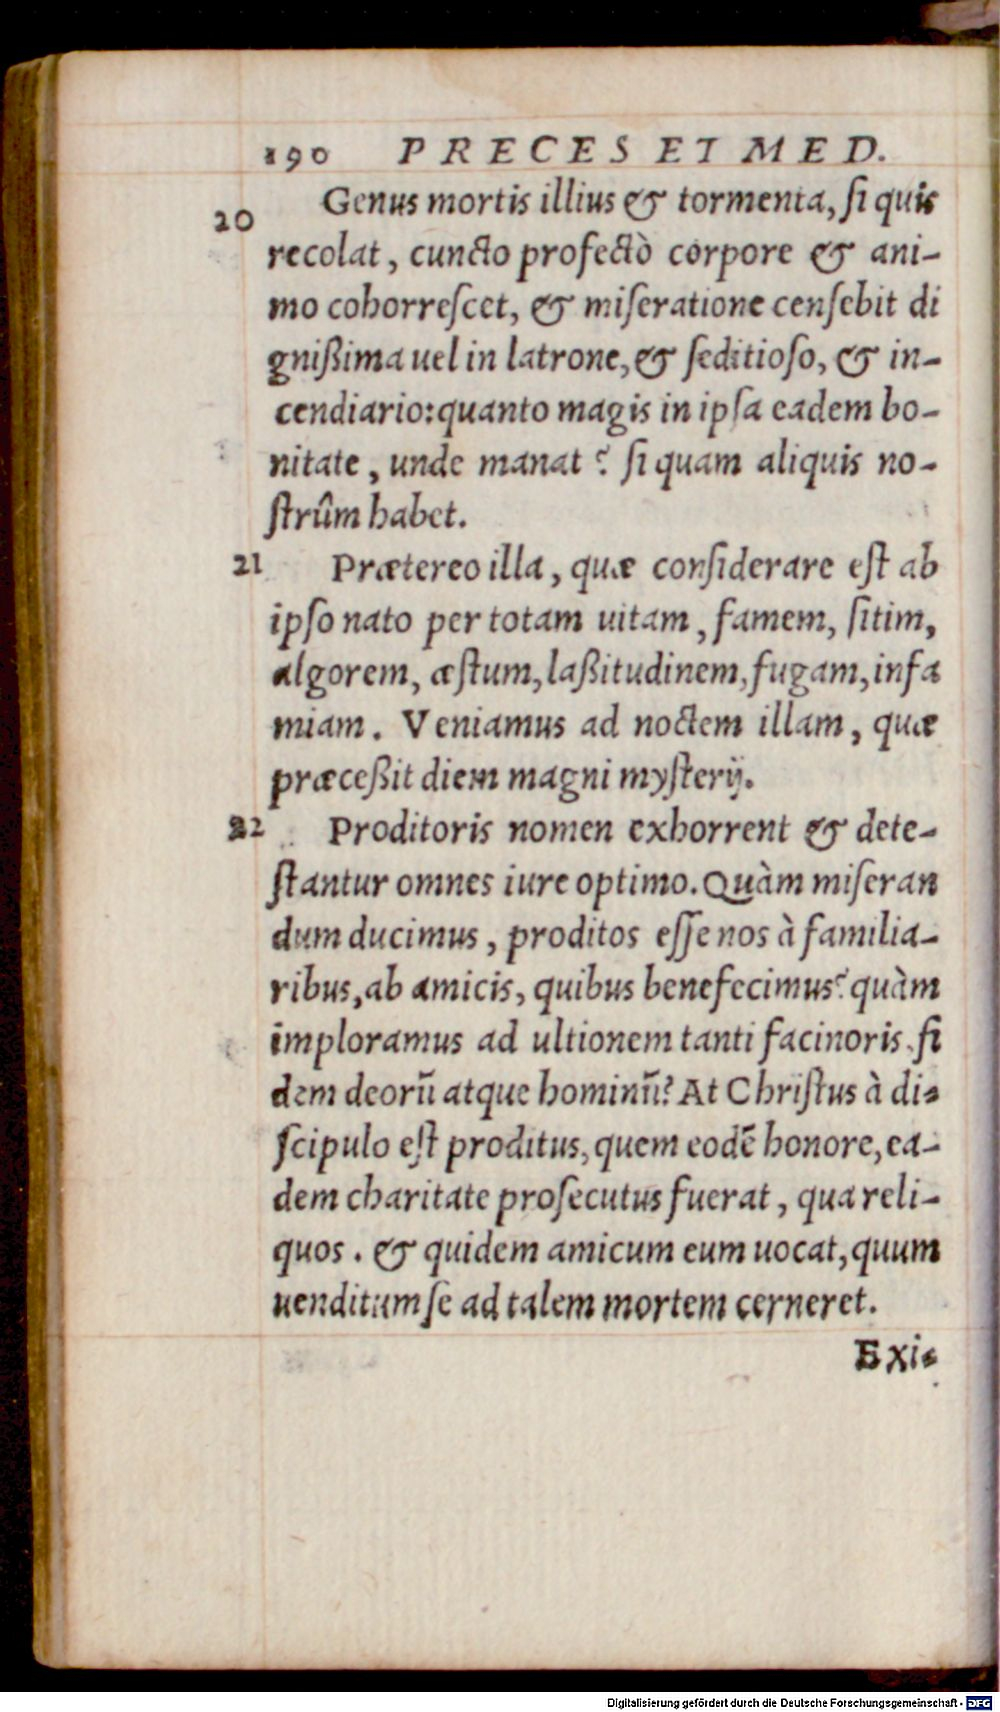 190 PRECES ET MED.
20 Genus mortis illius & tormenta, ſi quis
recolat, cuncto profectò corpore & ani-
mo cohorreſcet, & miſeratione cenſebit di
gnißima uel in latrone, & ſeditioſo, & in-
cendiario: quanto magis in ipſa eadem bo-
nitate, unde manat? ſi quam aliquis no-
ſtrûm habet.
21 Prætereo illa, quæ conſiderare eſt ab
ipſo nato per totam uitam, famem, ſitim,
algorem, æſtum, laßitudinem, fugam, infa
miam. Veniamus ad noctem illam, quæ
præceßit diem magni myſterij.
22 Proditoris nomen exhorrent & dete-
ſtantur omnes iure optimo. Quàm miſeran
dum ducimus, proditos eſſe nos à familia-
ribus, ab amicis, quibus benefecimus? quàm
imploramus ad ultionem tanti facinoris fi
dem deorũ atque hominũ? At Chriſtus à di-
ſcipulo eſt proditus, quem eodẽ honore, ea-
dem charitate proſecutus fuerat, qua reli-
quos. & quidem amicum eum uocat, quum
uenditum ſe ad talem mortem cerneret.
Exi-
Digitalisierung gefördert durch die Deutsche Forschungsgemeinschaft - DFG